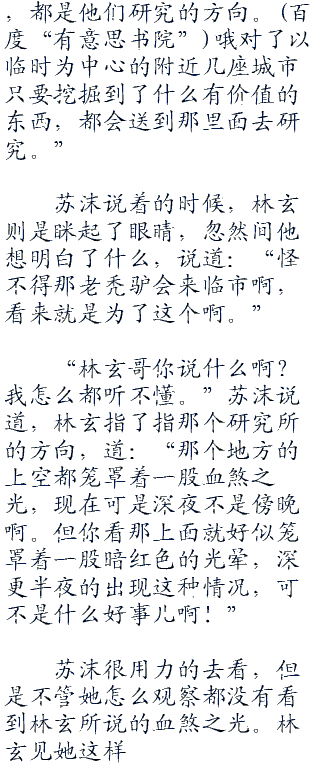 ，都是他们研究的方向。(百
度“有意思书院”)哦对了以
临时为中心的附近几座城市
只要挖掘到了什么有价值的
东西，都会送到那里面去研
究。”
苏沫说着的时候，林玄
则是眯起了眼睛，忽然间他
想明白了什么，说道：“怪
不得那老秃驴会来临市啊，
看来就是为了这个啊。”
“林玄哥你说什么啊？
我怎么都听不懂。”苏沫说
道，林玄指了指那个研究所
的方向，道：“那个地方的
上空都笼罩着一股血煞之
光，现在可是深夜不是傍晚
啊。但你看那上面就好似笼
罩着一股暗红色的光晕，深
更半夜的出现这种情况，可
不是什么好事儿啊！”
苏沫很用力的去看，但
是不管她怎么观察都没有看
到林玄所说的血煞之光。林
玄见她这样